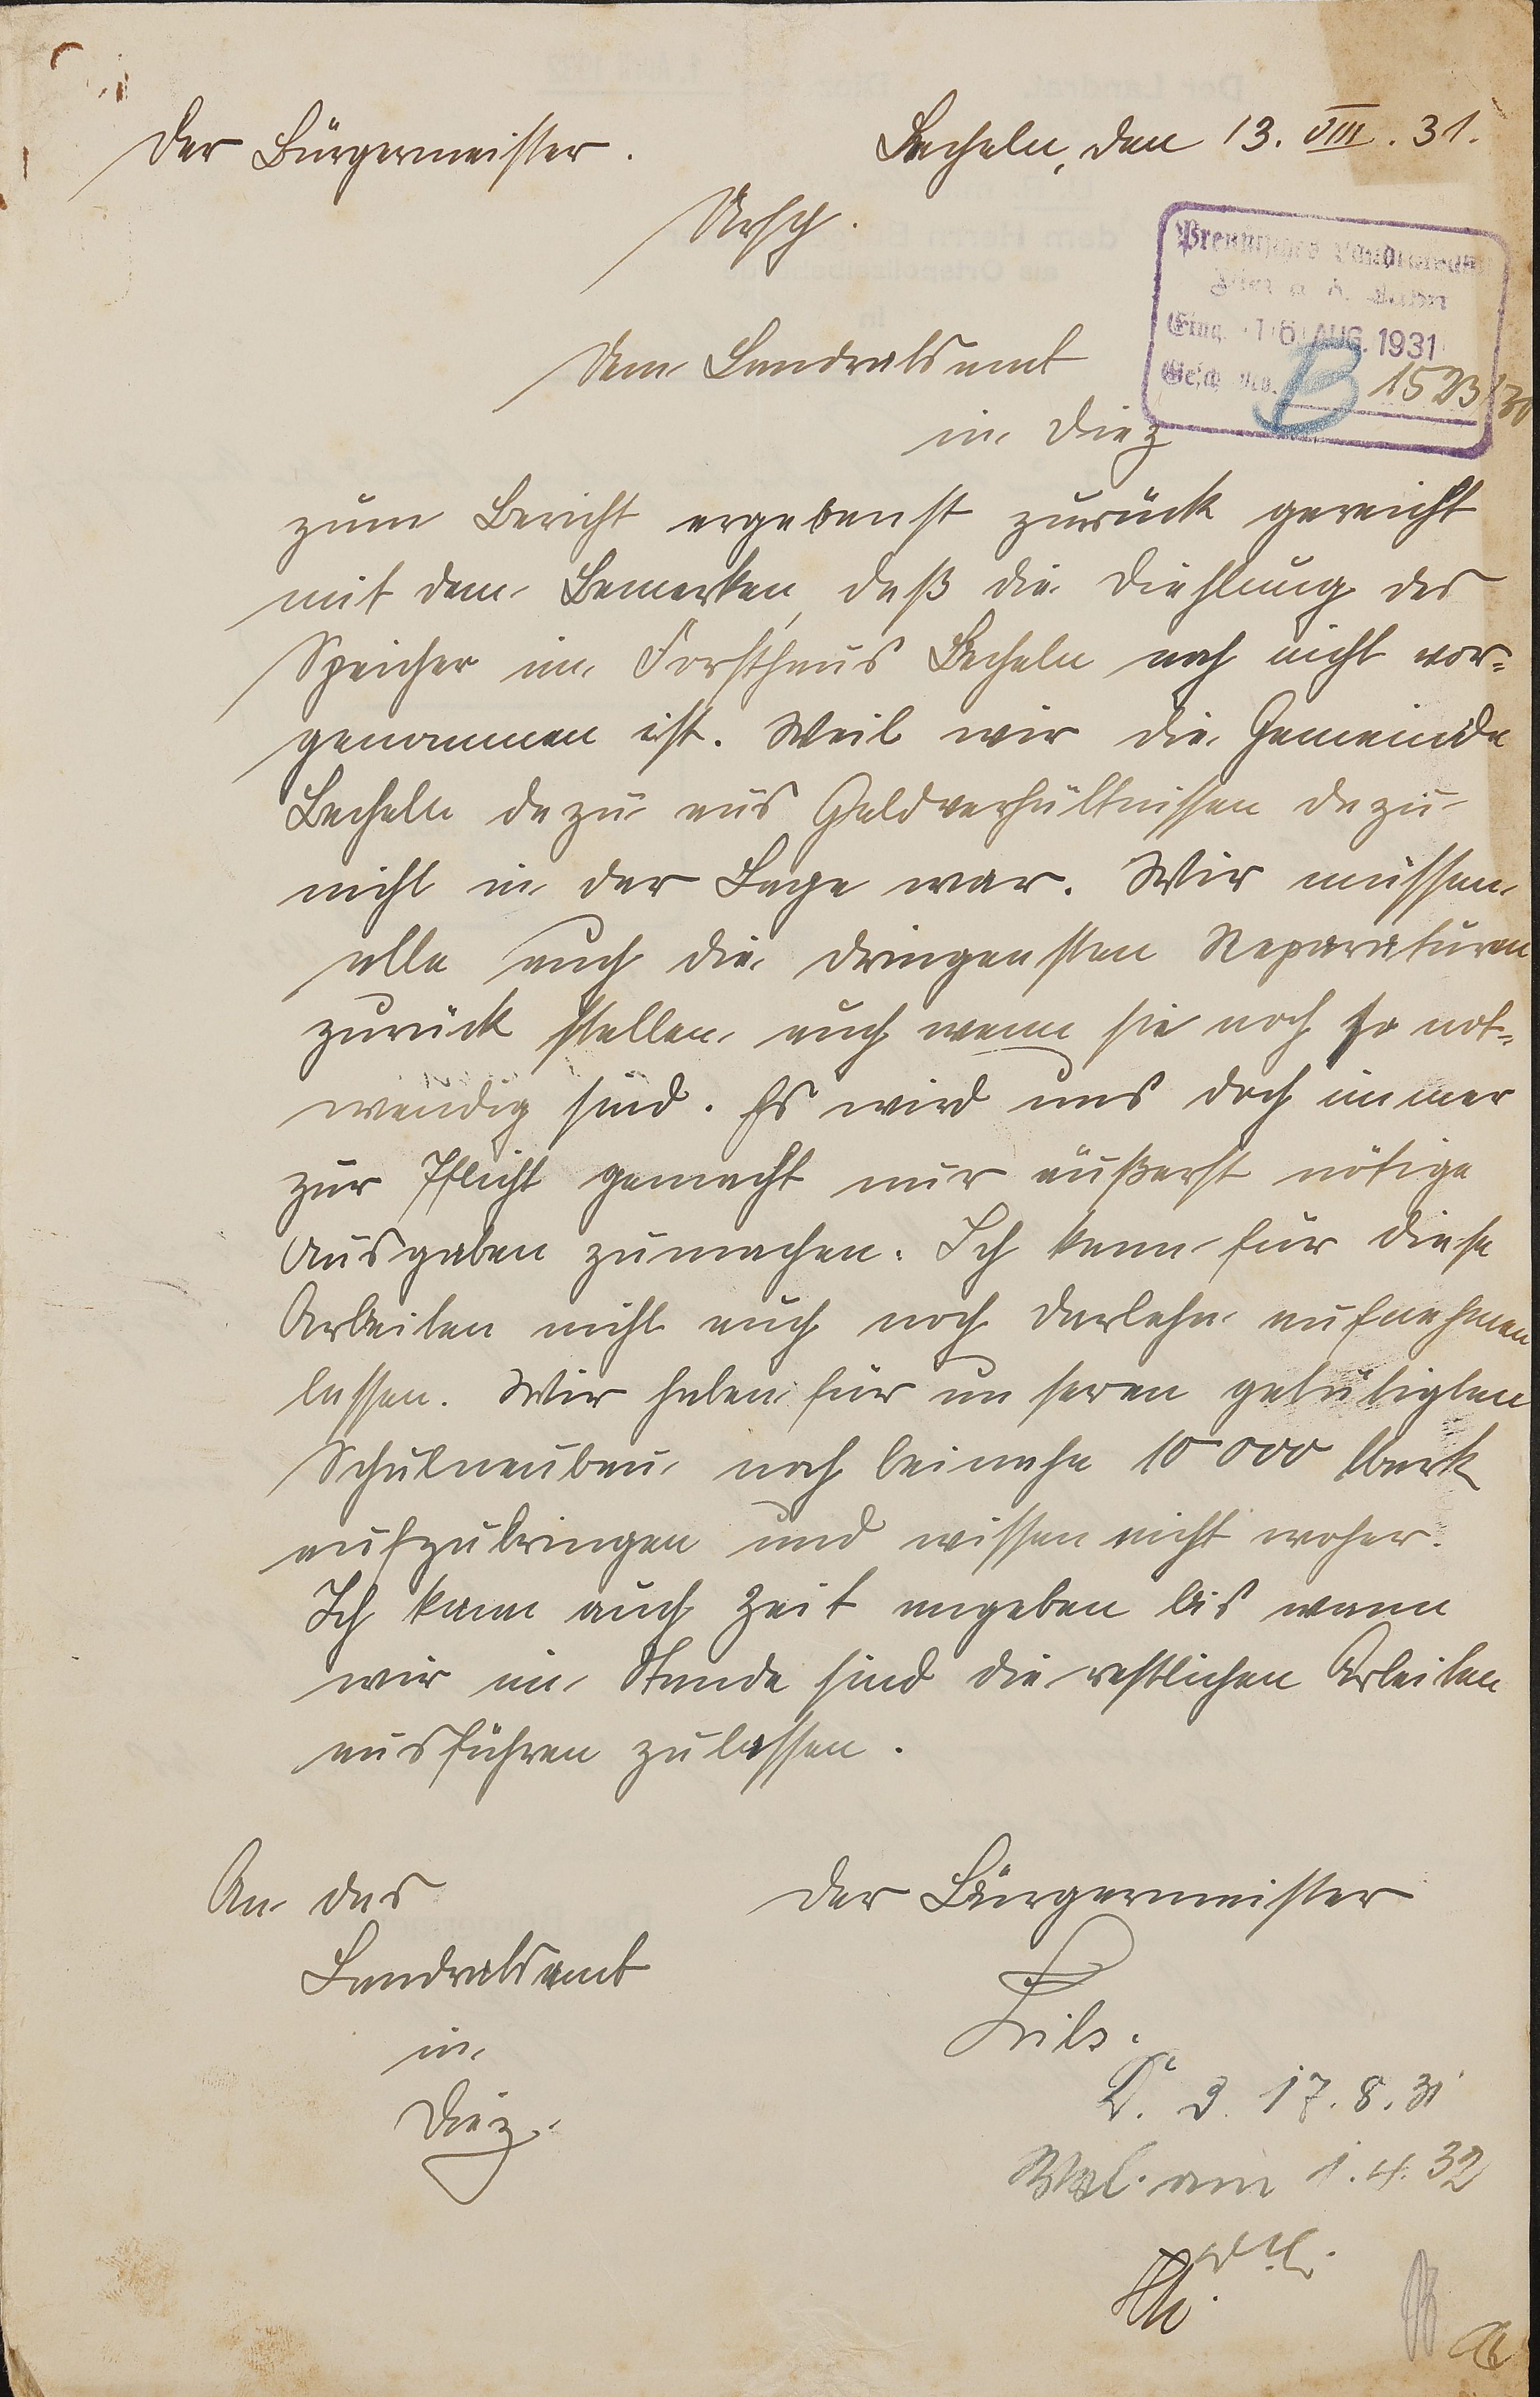 Der Bürgermeister. Becheln, den 13. VIII. 31.
Urschr.
Preußisches Landratsamt
Diez a. d. Lahn
Eing. 16. AUG. 1931
Gesch. No. B 1523/30
Dem Landratsamt
in Diez
zum Bericht ergebenst zurück gereicht
mit dem Bemerken, daß die Diehlung des
Speicher im Forsthaus Becheln noch nicht vor-
genommen ist. Weil wir die Gemeinde
Becheln dazu aus Geldverhältnissen dazu
nicht in der Lage war. Wir müssen
alle auch die dringensten Reparaturen
zurück stellen, auch wenn sie noch so not-
wendig sind. Es wird uns doch immer
zur Pflicht gemacht nur äußerst nötige
Ausgaben zumachen. Ich kann für diese
Arbeiten nicht auch noch Darlehn aufnehmen
lassen. Wir haben für un seren getätigten
Schulneubau noch beinahe 10 000 Mark
aufzubringen und wissen nicht woher.
Ich kann auch Zeit angeben bis wann
wir im Stande sind die restlichen Arbeiten
ausführen zulassen.
An das Der Bürgermeister
Landratsamt
in
Diez.
D. 17. 8. 31
Wvl. am 1. 4. 32